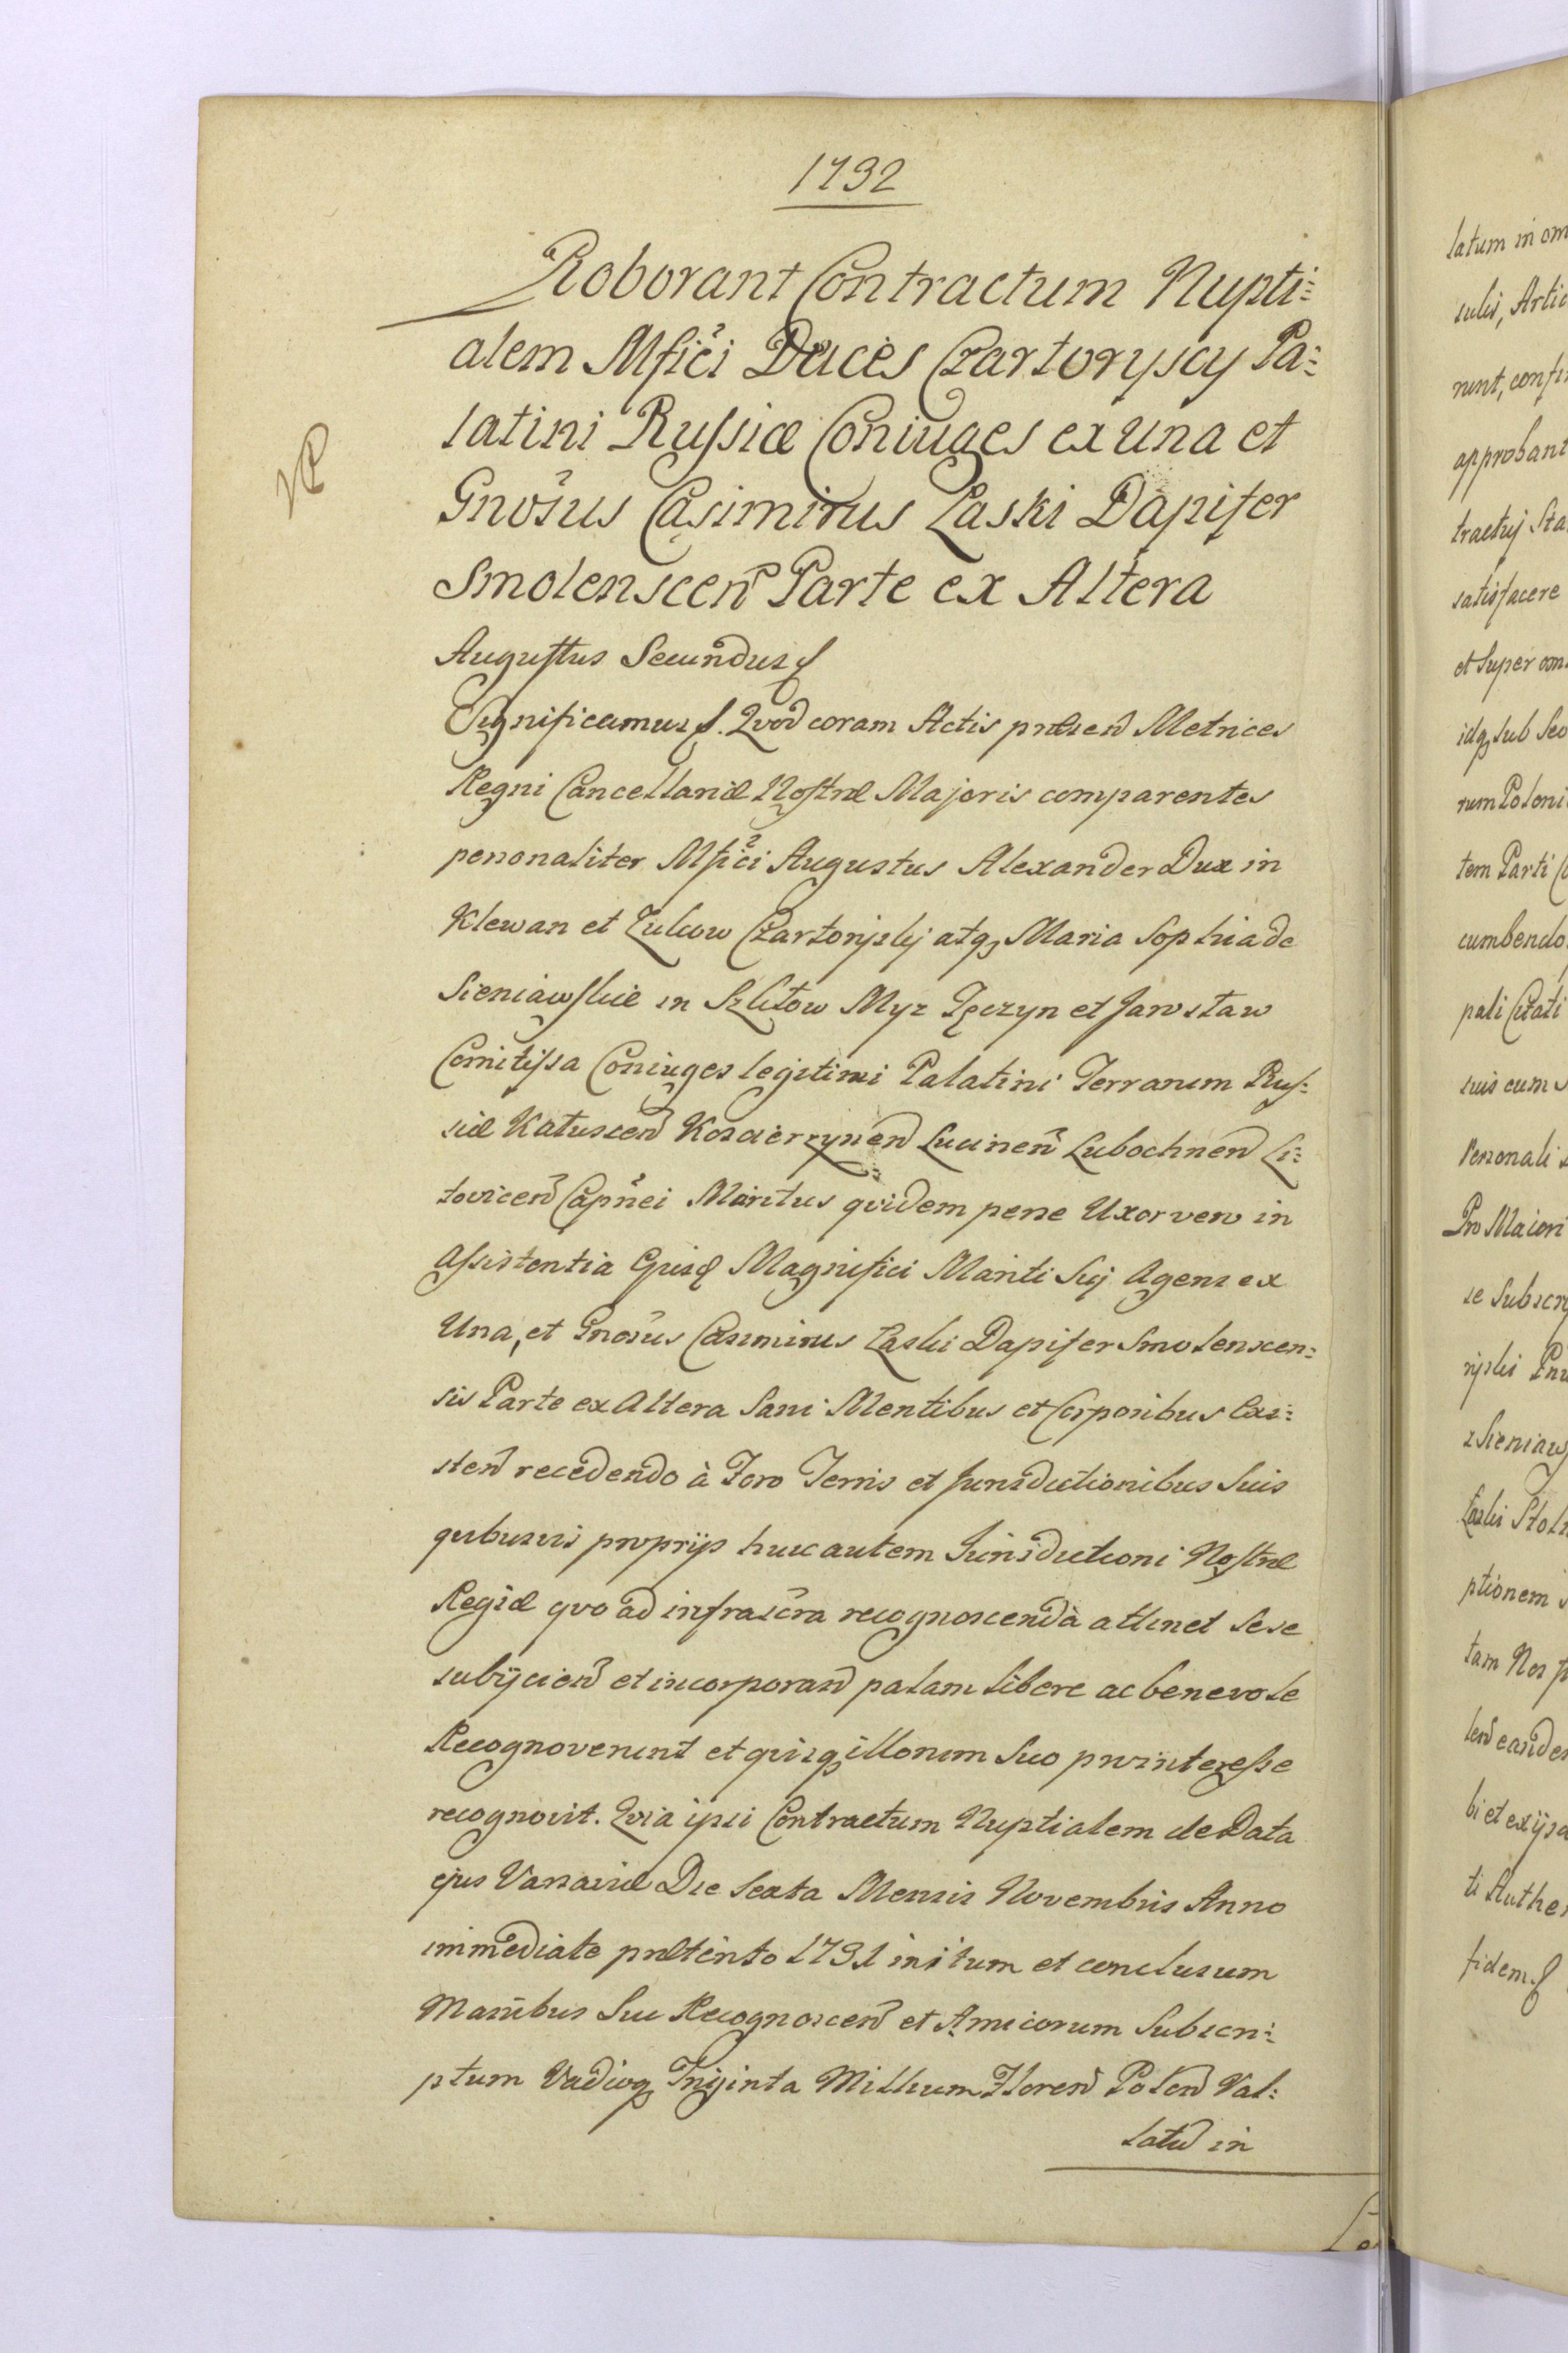 1732
Roborant Contractum Nupti:
alem Mfici Duces Czartoryscy Pa:
latini Russiæ Coniuges ex una et
Gnosus Casimirus Łaski Dapifer
Smolenscen Parte ex Altera
Augustus Secundus
Significamus. Qvod coram Actis præsen Metrices
Regni Cancellariæ Nostræ Majoris comparentes
personaliter Mfici Augustus Alexander Dux in
Klewan et Zukow Czartoryski atq Maria Sophia de
Sieniawskie in Szkłow Mysz Tęczyn et Jarosław
Comitissa Coniuges legitimi Palatini Terrarum Rus:
siæ Kałuscen Koscierzynen Lucinen Lubochnen La:
tovicen Capnei Maritus qvidem per se Uxor vero in
Assistentia Ejusd Magnifici Mariti Sui Agens ex
Una, et Gnosus Casimirus Łaski Dapifer Smolenscen:
sis Parte ex Altera Sani Mentibus et Corporibus Exi:
sten recedendo à Foro Terris et Jurisdictionibus Suis
qvibusvis proprijs huic autem Jurisdictioni Nostræ
Regiæ qvo ad infrascra recognoscenda attinet sese
subijcien et incorporan palam libere ac benevole
Recognoverunt et qvisq illorum Suo pro interesse
recognovit. Qvia ipsi Contractum Nuptialem de Data
ejus Varsaviæ Die Sexta Mensis Novembris Anno
immediate præterito 1731 initum et conclusum
Manibus Suis Recognoscen et Amicorum Subscri:
ptum Vadioq Triginta Millium Floren Polon Val:
latu in
latum in om
sulis, Artic
runt, confir
approbant
tractuj Sta
satisfacere
et Super om
idq sub Seo
rum Poloni
tem Parti
cumbendo
pali Citati
suis cum
Personali
Pro Maiori
se Subscry
ryski
z Sieniaw
Łaski Stol
ptionem
tam Nos
len eandem
bi et ex ijs
ti Authe
fidem